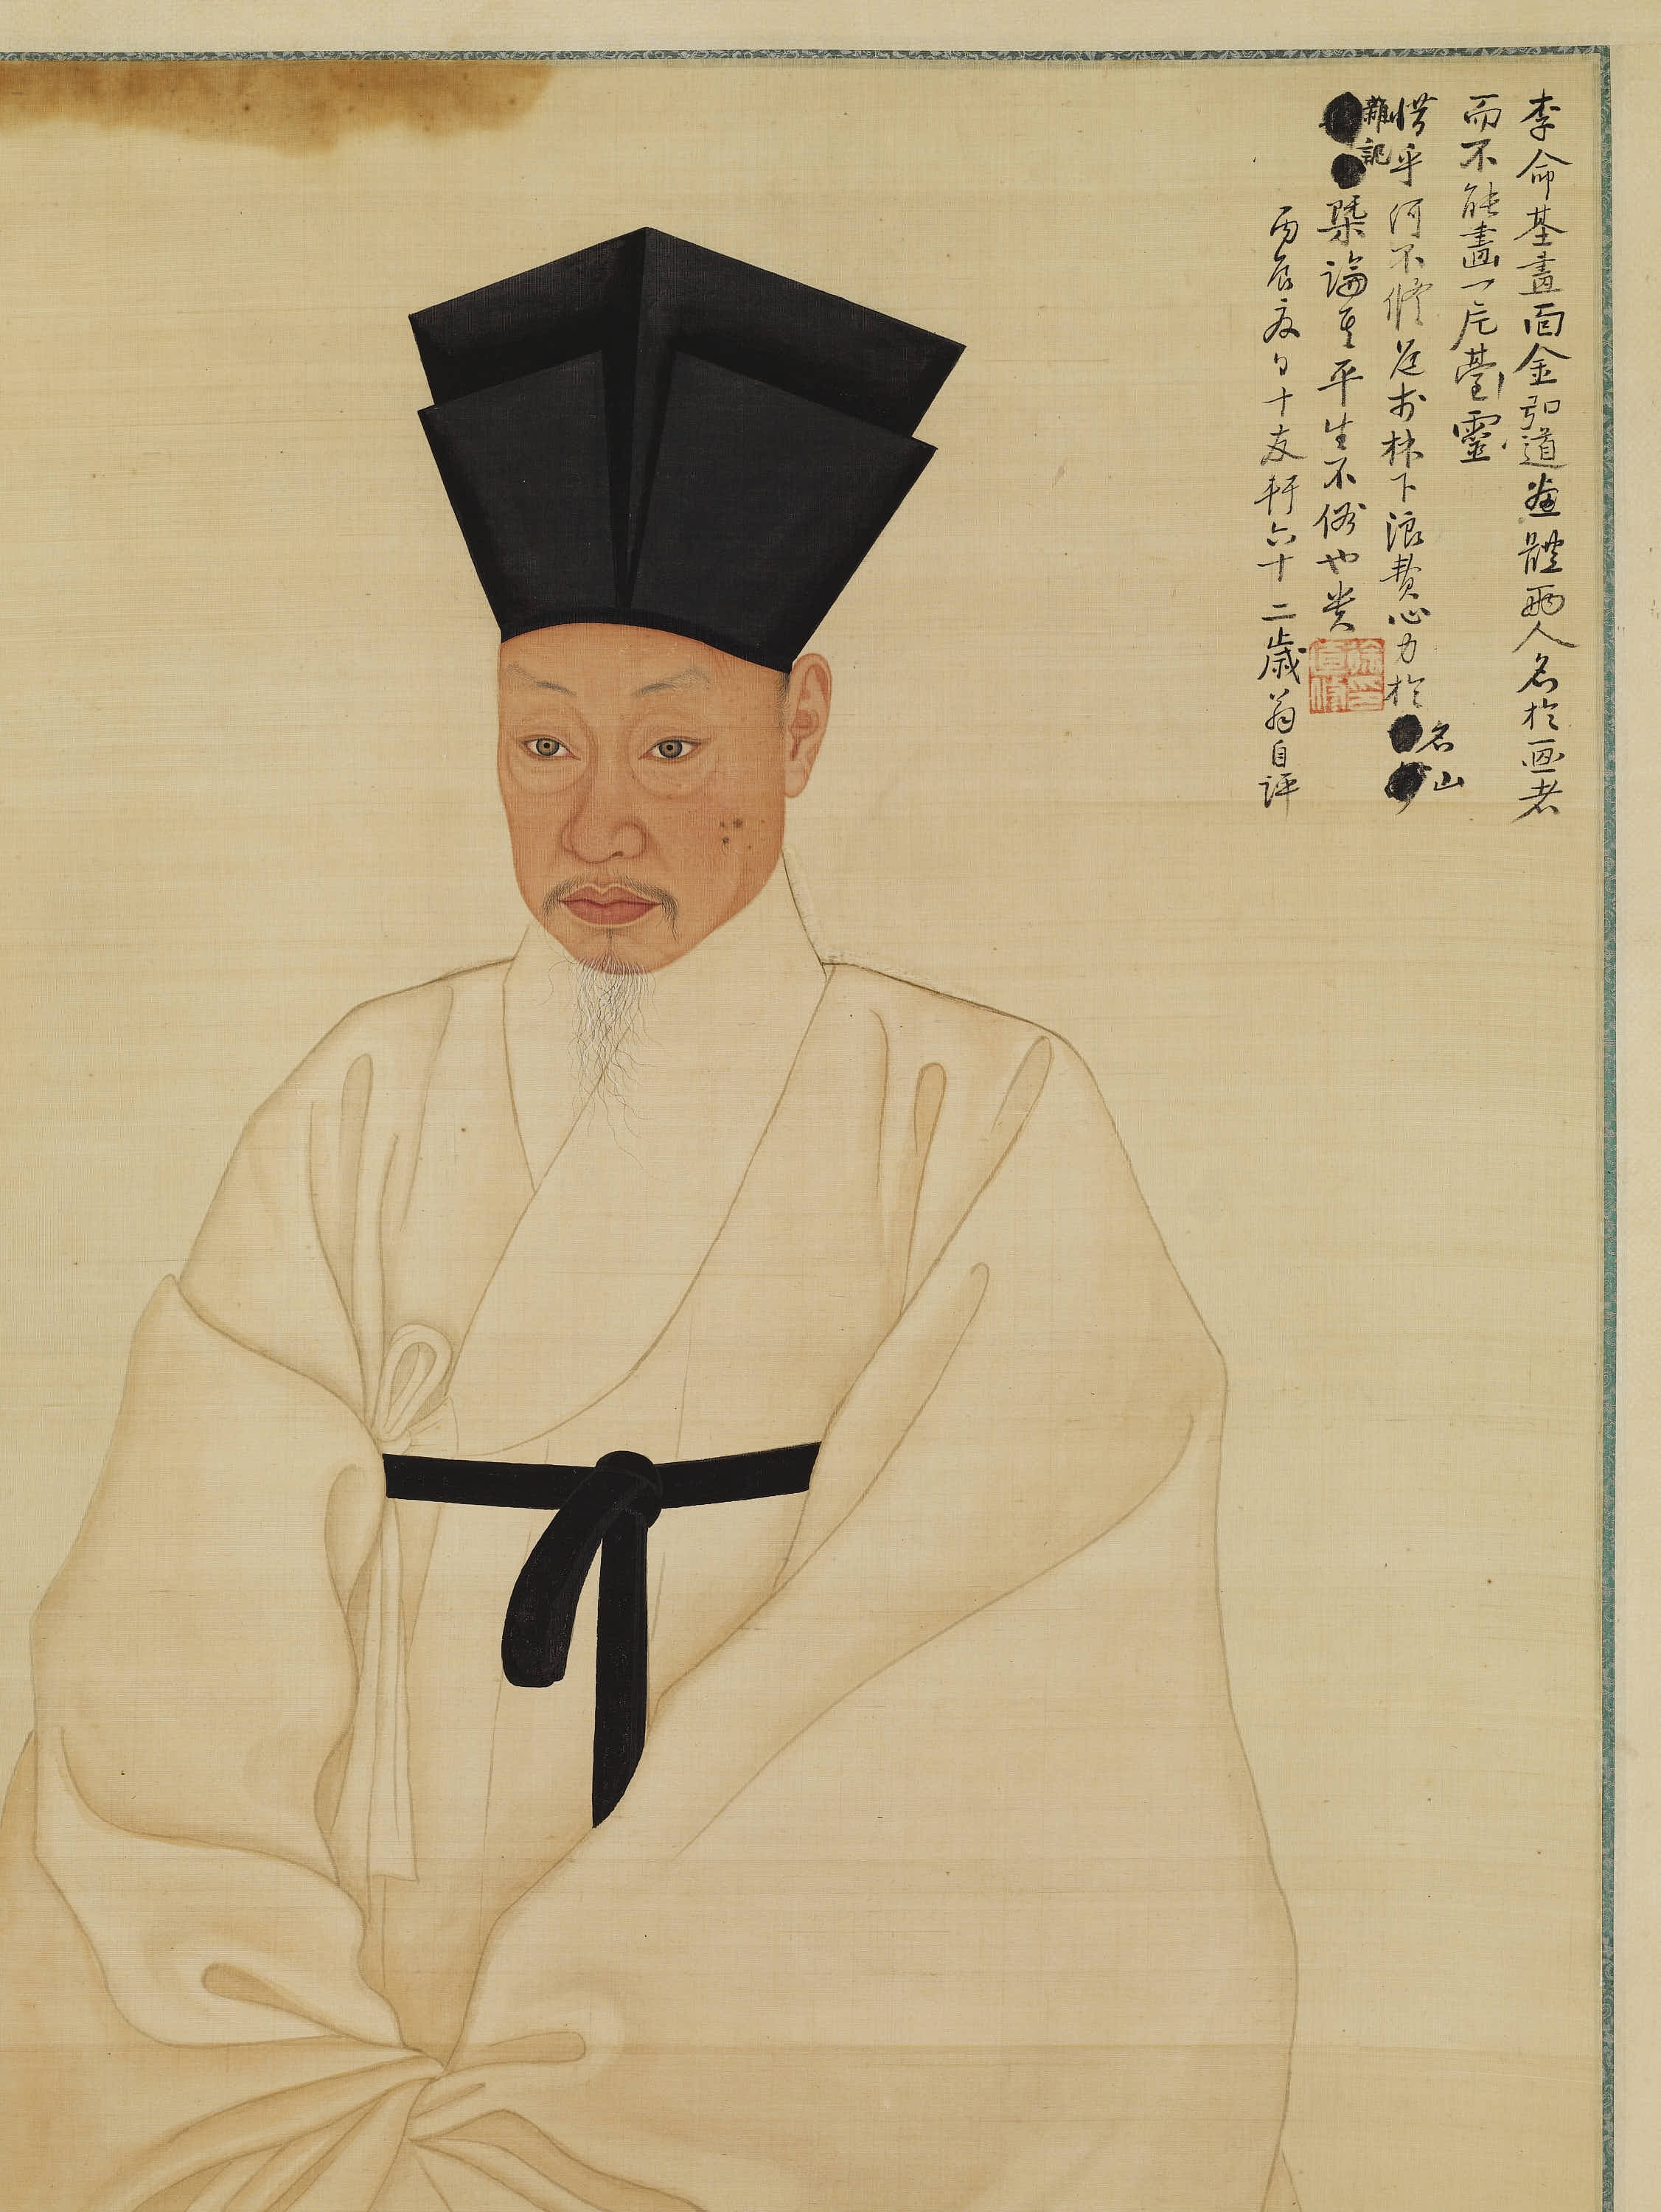 李命基畫面金弘道畫體兩人名於画者
而不能畫一片臺靈
惜乎何不修道於林下浪費心力於名山
雜記槩論其平生不俗也貴
丙辰夏日十友軒六十二歲翁自評
徐印直修